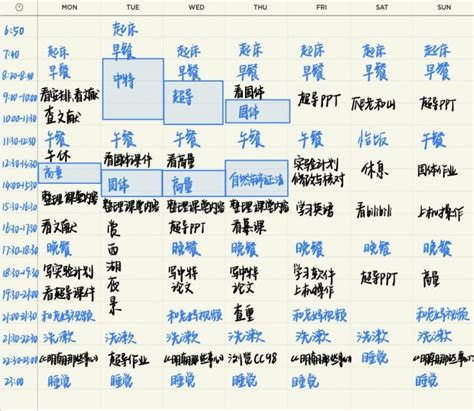 MON TUE WED THU FRI SAT SUN
6:50 起床
7:40 起床 早餐 起床 起床 起床 起床 起床
8:20-8:40 早餐 中特 早餐 早餐 早餐 早餐 早餐
9:00-10:00 超导 看固体 超导PPT 爬老和山 超导PPT
10:00-11:30 查文献 固体
11:30-12:30 午餐 午餐 午餐 午餐 午餐 恰饭 午餐
12:30-14:00 午休 看固体课件 看高量 实验计划 休息 固体作业
14:00-15:30 高量 固体 高量 自然辩证法 修改与核对
15:30-16:30 整理课堂内容 整理课堂内容 整理课堂内容 整理课堂内容 学习英语 看bilibili 上机操作
看文献 赏 超导PPT 看慕课
17:30-18:30 晚餐 西 晚餐 晚餐 晚餐 晚餐 晚餐
18:30-19:30 写实验计划 湖 写中特 写中特 学习软件 超导PPT 高量
19:30-21:00 看超导课件 夜 论文 论文 上机操作
21:00-21:30 和老妈视频 景 和老妈视频 查重 和老妈视频
21:30-22:30 洗漱 洗漱 洗漱 洗漱 洗漱 洗漱 洗漱
22:30-23:00 《明朝那些事》 超导作业 《明朝那些事》 浏览CC98 《明朝那些事》 睡觉 《明朝那些事》
23:00 睡觉 睡觉 睡觉 睡觉 睡觉 睡觉